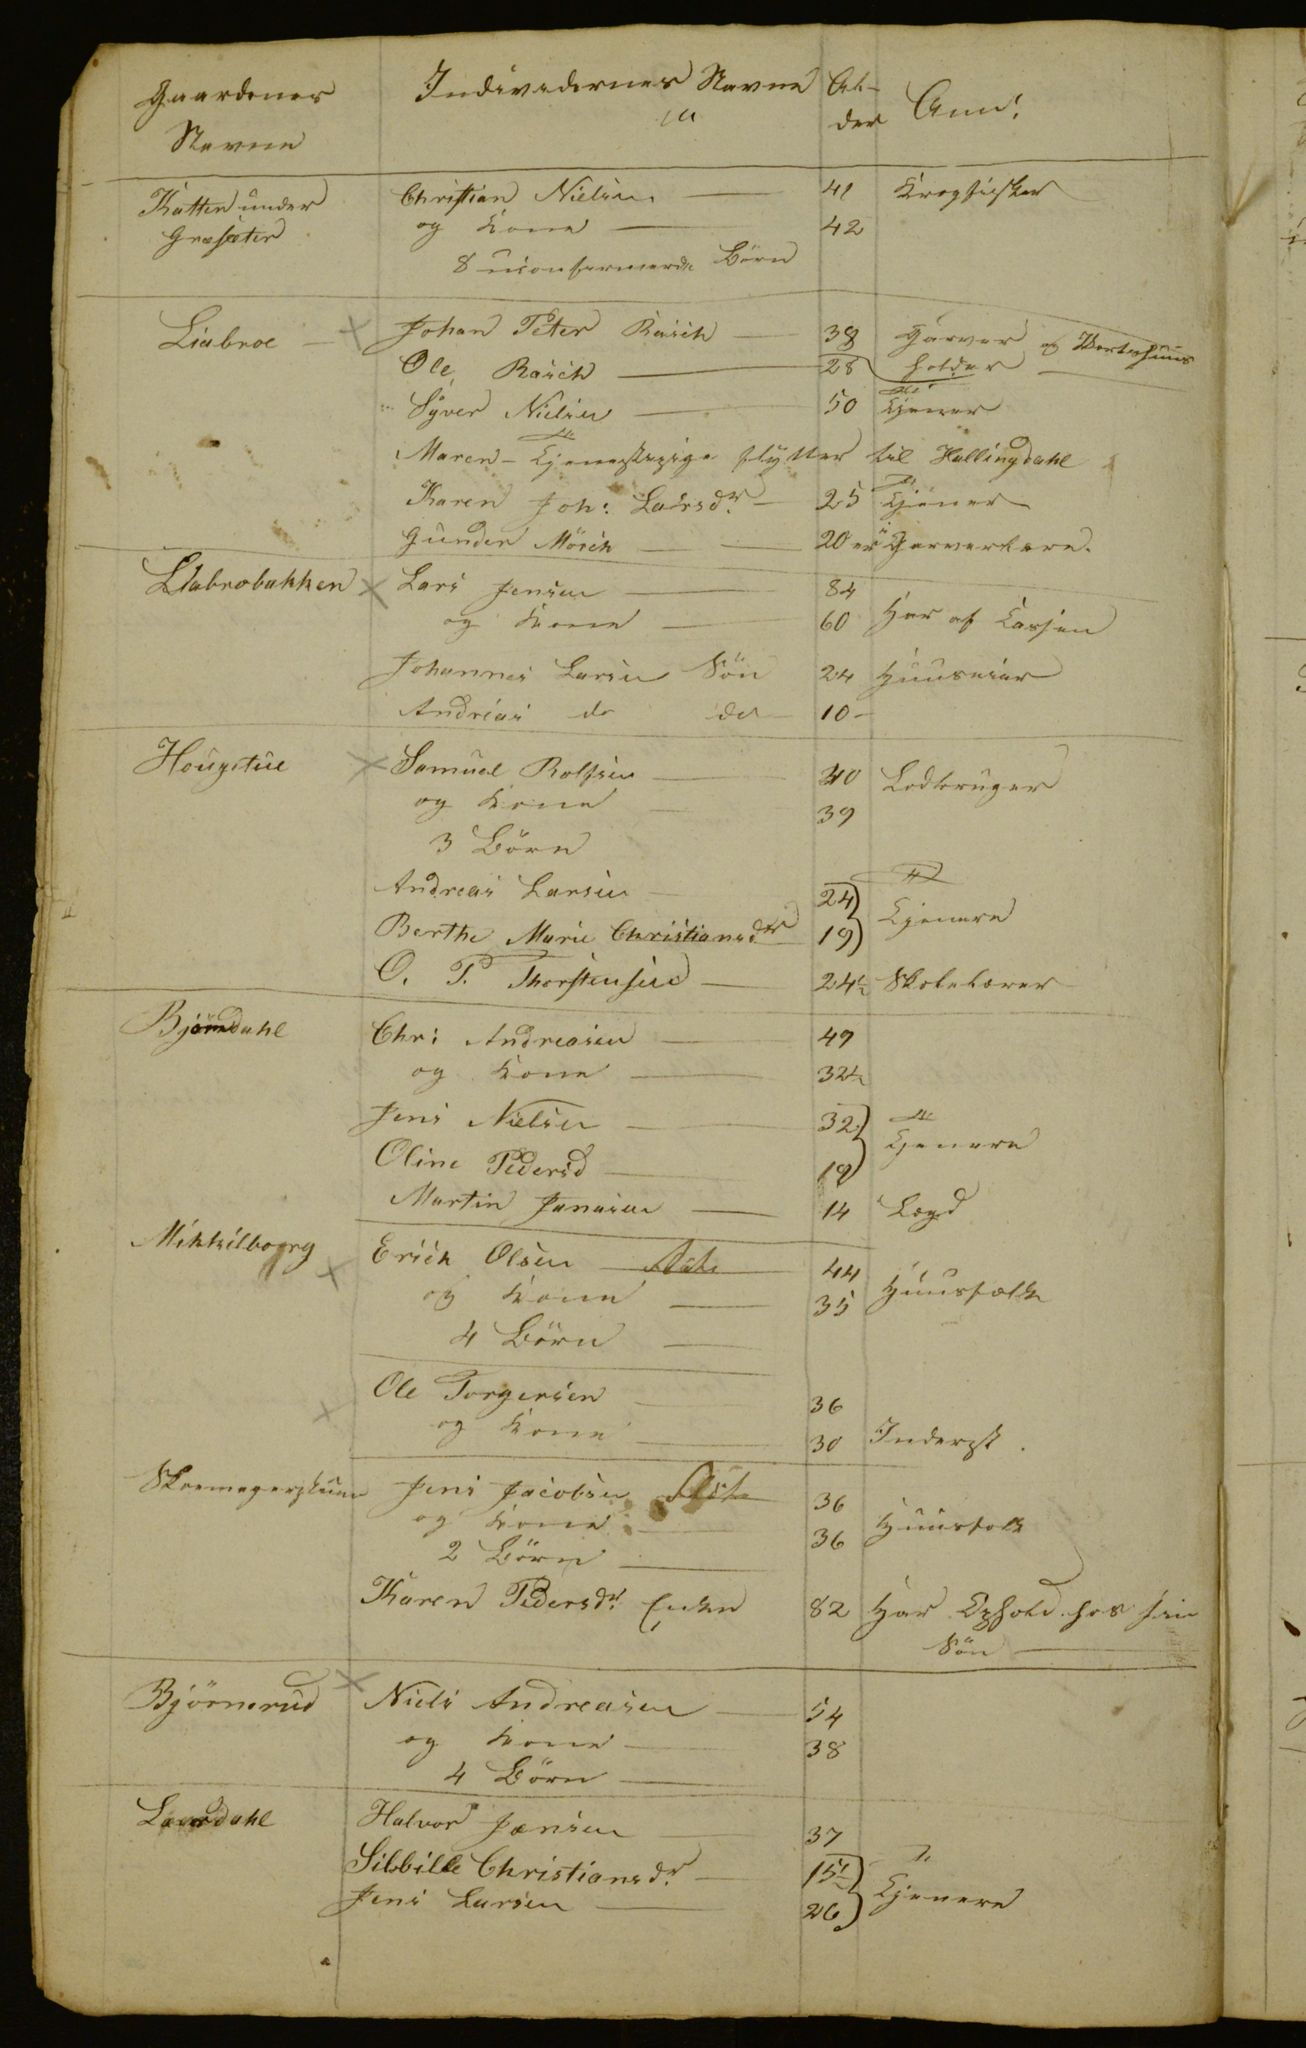 Gaardenes Navne | Individernes Navne | Al-der | Anm:
Katten under | Christian Nielsen — | 41 | Krogfisker
Græsæter | og Kone — | 42
8 uconfermerde Börn
Liabroe — | Johan Peter Rasch — | 38 | Garver og Vertshuus
Ole Rasch — | 28 | holder —
Syver Nielsen — | 50 | Tjener
Maren — Tjenestepige flytter til Hallingdahl
Karen Joh: Larsdr — | 25 | Tjener
Gunder Mörch — | 20 | er i Garverlære.
Liabrobakken | Lars Jensen — | 84
og Kone — | 60 | Har af Cassen
Johannes Larsen Sön | 24 | Huuseier
Andreas do do — | 10 –
Hougstue | Samuel Rolfsen — | 40 | Lodbruger
og Kone — | 39
3 Börn
Andreas Larsen — | 24
Berthe Marie Christiansdr | 19 | Tjenere
O. P. Thorstensen — | 24½ | Skolelærer
Björndahl | Chr: Andreasen — | 49
og Kone — | 32½
Jens Nielsen — | 32 | Tjenere
Oline Pedersd — | 19
Martin Jensen — | 14 | Lægd
Mikkelborg | Erich Olsen | 44 | Huusfolk
og Kone — | 35
4 Börn —
Ole Torgersen — | 36
og Kone — | 30 | Inderst.
Skoemagerstuen | Jens Jacobsen | 36 | Huusfolk
og Kone — | 36
2 Börn —
Karen Pedersdr Enke | 82 | Har Ophold hos sin
Sön —
Björnerud | Niels Andreasen — | 54
og Kone — | 38
4 Börn —
Laurdahl | Halvor Jensen — | 37
Sibbille Christiansdr — | 15½ | Tjenere
Jens Larsen — | 26